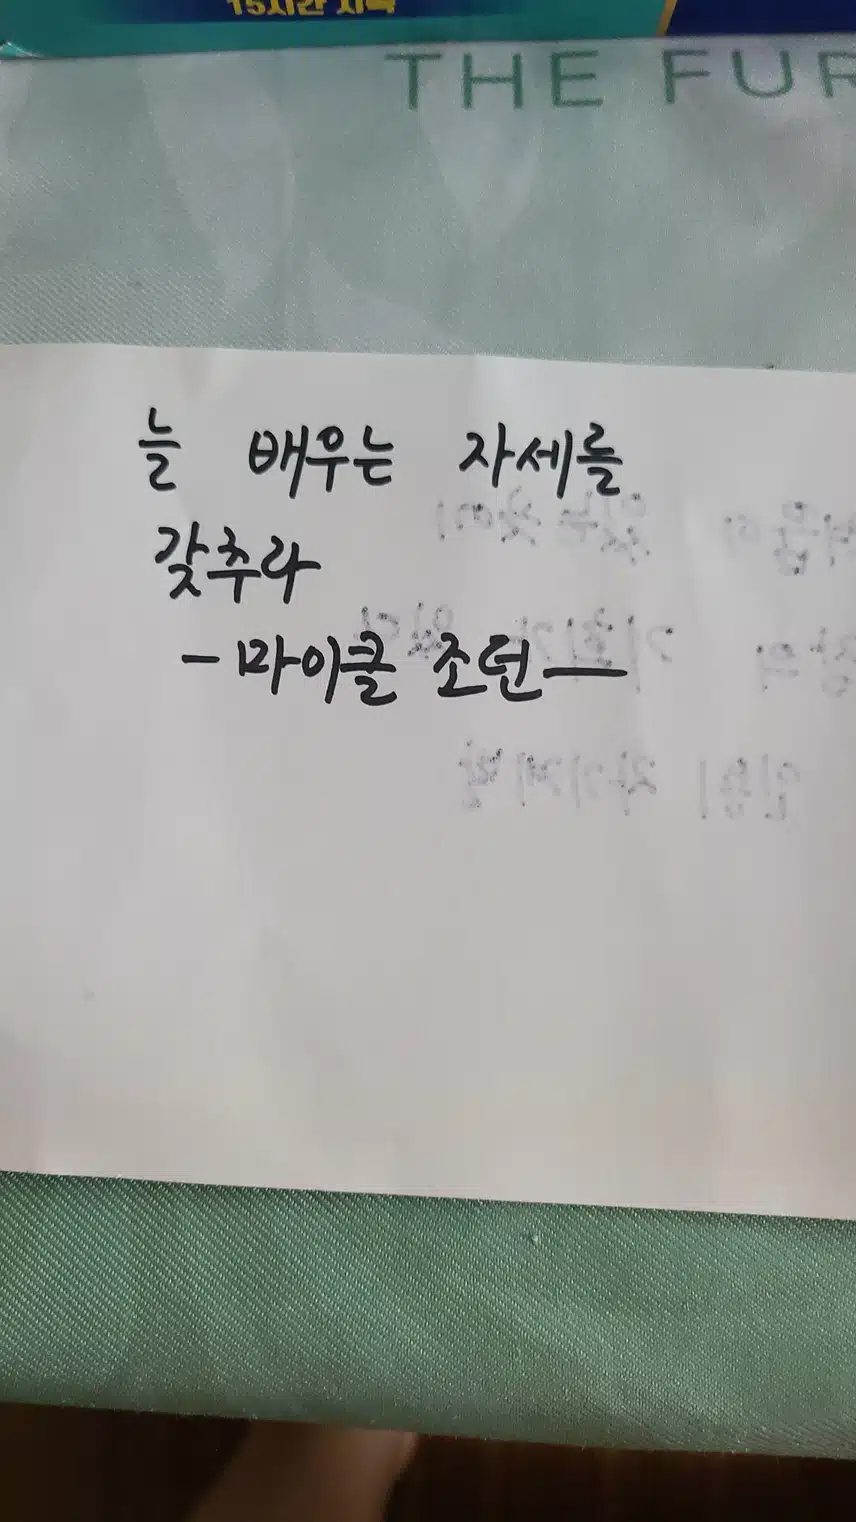 15시간 지속
THE FUR
늘 배우는 자세를
갖추라
-마이클 조던-